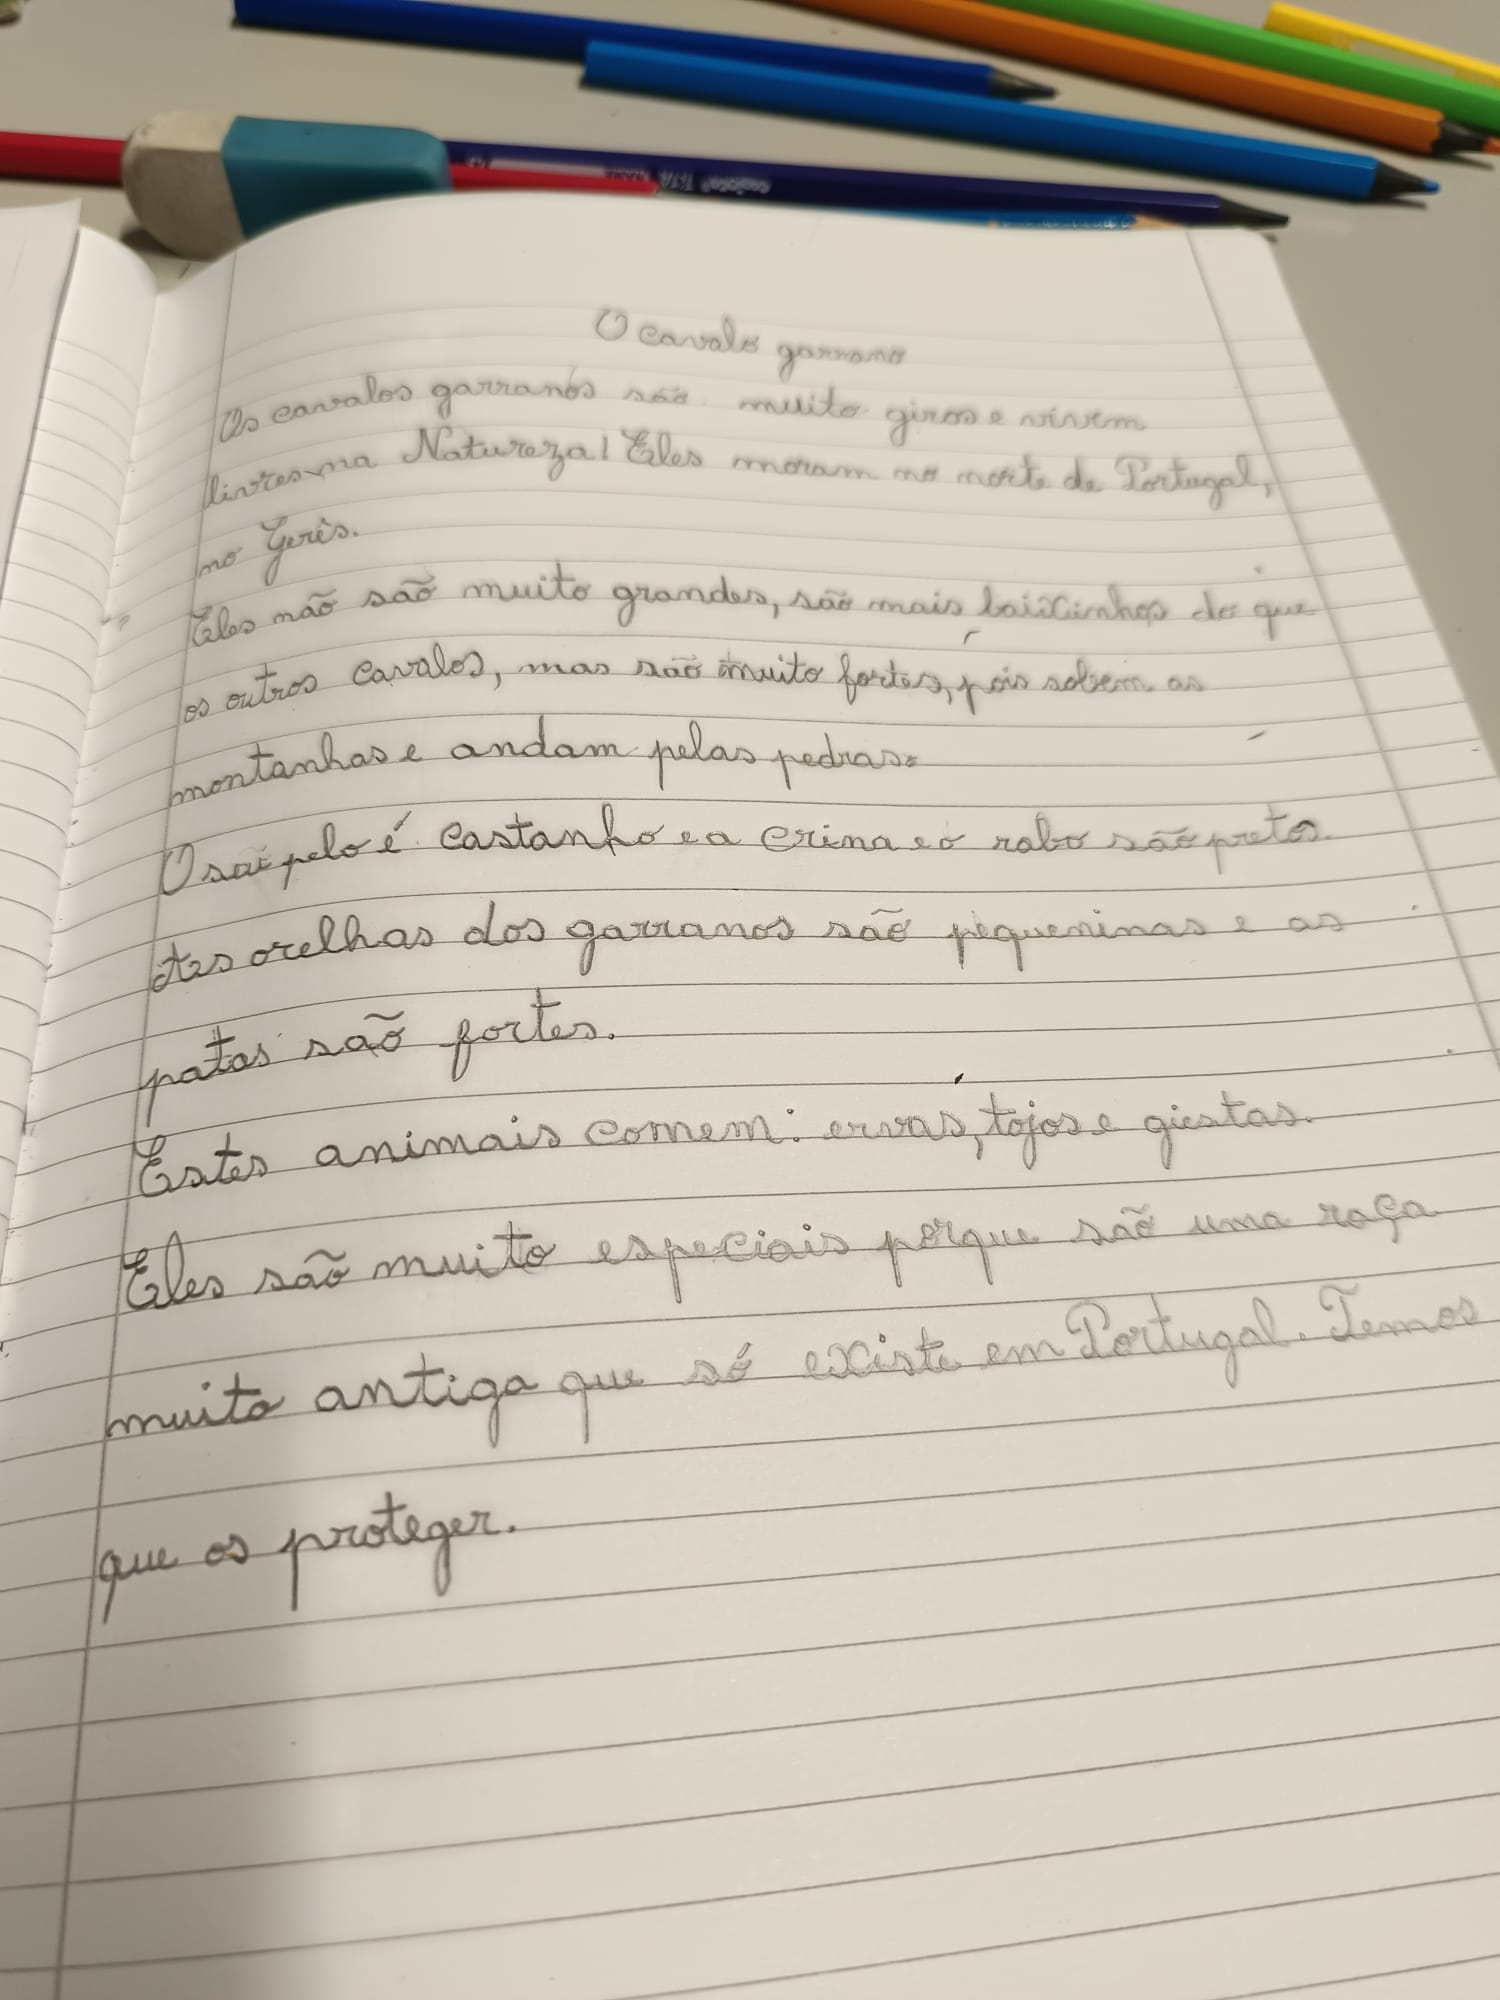 O cavalo garrano
Os cavalos garranos são muito giros e vivem
livres na Natureza! Eles moram no norte de Portugal,
no Gerês.
Eles não são muito grandes, são mais baixinhos do que
os outros cavalos, mas são muito fortes, pois sobem as
montanhas e andam pelas pedras.
O seu pelo é castanho e a crina e o rabo são pretos.
As orelhas dos garranos são pequeninas e as
patas são fortes.
Estes animais comem: ervas, tojos e giestas.
Eles são muito especiais porque são uma raça
muito antiga que só existe em Portugal. Temos
que os proteger.